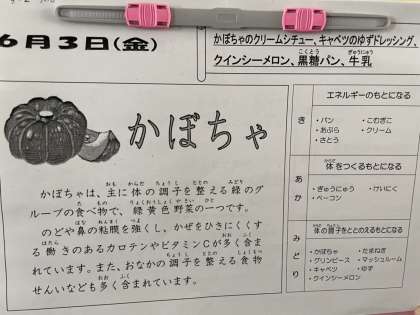 6月3日(金)
かぼちゃのクリームシチュー、キャベツのゆずドレッシング、
クインシーメロン、黒糖パン、牛乳
こくとう
ぎゅうにゅう
かぼちゃ
かぼちゃは、主に体の調子を整える緑のグ
ループの食べ物で、緑黄色野菜の一つです。
のどや鼻の粘膜を強くし、かぜをひきにくくす
る働きのあるカロテンやビタミンCが多く含ま
れています。また、おなかの調子を整える食物
せんいなども多く含まれています。
き
エネルギーのもとになる
・パン ・こむぎこ
・あぶら ・クリーム
・さとう
あか
体をつくるもとになる
・ぎゅうにゅう ・けいにく
・ベーコン
みどり
体の調子をととのえるもとになる
・かぼちゃ ・たまねぎ
・グリンピース ・マッシュルーム
・キャベツ ・ゆず
・クインシーメロン